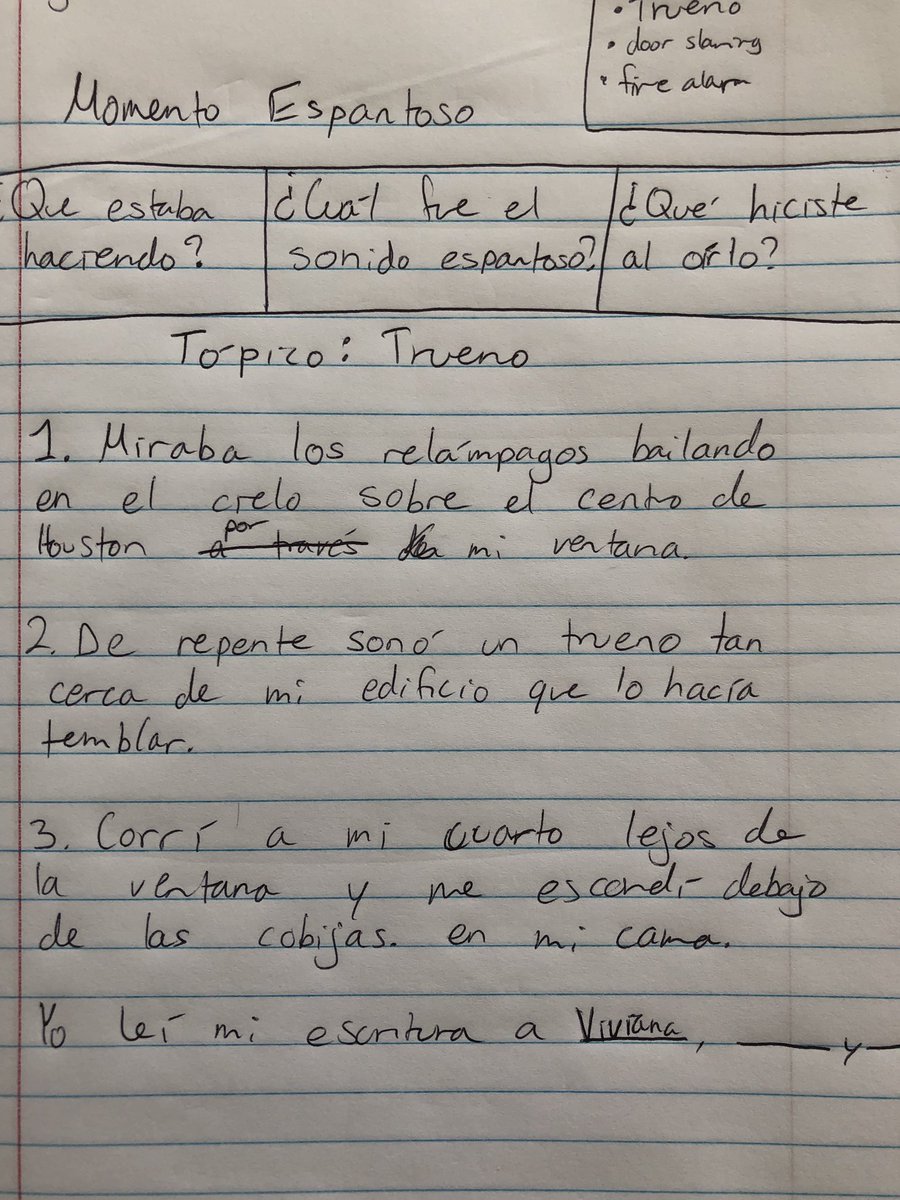 • Trueno
• door slaming
• fire alarm
Momento Espantoso
¿Que estaba haciendo?
¿Cuál fue el sonido espantoso?
¿Qué hiciste al oírlo?
Tópico: Trueno
1. Miraba los relámpagos bailando
en el cielo sobre el centro de
Houston por a través mi ventana.
2. De repente sonó un trueno tan
cerca de mi edificio que lo hacía
temblar.
3. Corrí a mi cuarto lejos de
la ventana y me escondí debajo
de las cobijas. en mi cama.
Yo leí mi escritura a Viviana, ____ y